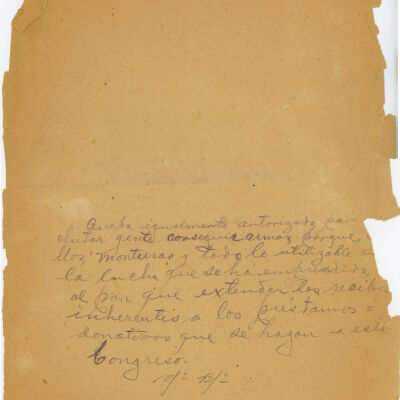 Queda igualmente autorizado par
clutar gente conseguir armas, parque
llos, monturas y todo lo utilizable e
la lucha que se ha emprendido,
al par que extender los recibos
inherentes a los préstamos o
donativos que se hagan a este
Congreso.
Vº Bº